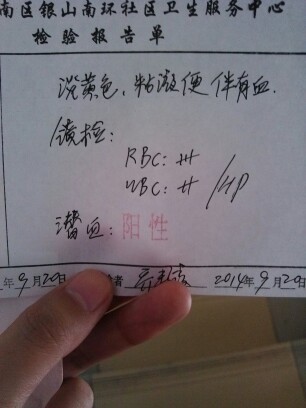 南区银山南环社区卫生服务中心
检验报告单
淡黄色、粘凝便伴有血.
镜检:
RBC: +++
WBC: ++ /HP
潜血: 阳性
年9月20日 者 2014年9月20日